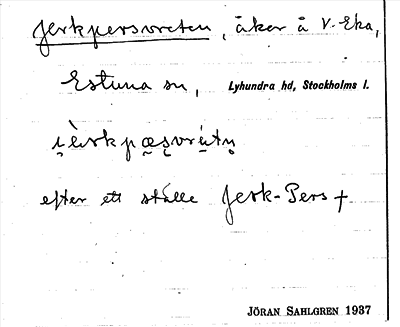 Jerkpersvreten, åker å V. Eka,
Estuna sn, Lyhundra hd, Stockholms l.
efter ett ställe Jerk-Pers †
JÖRAN SAHLGREN 1937